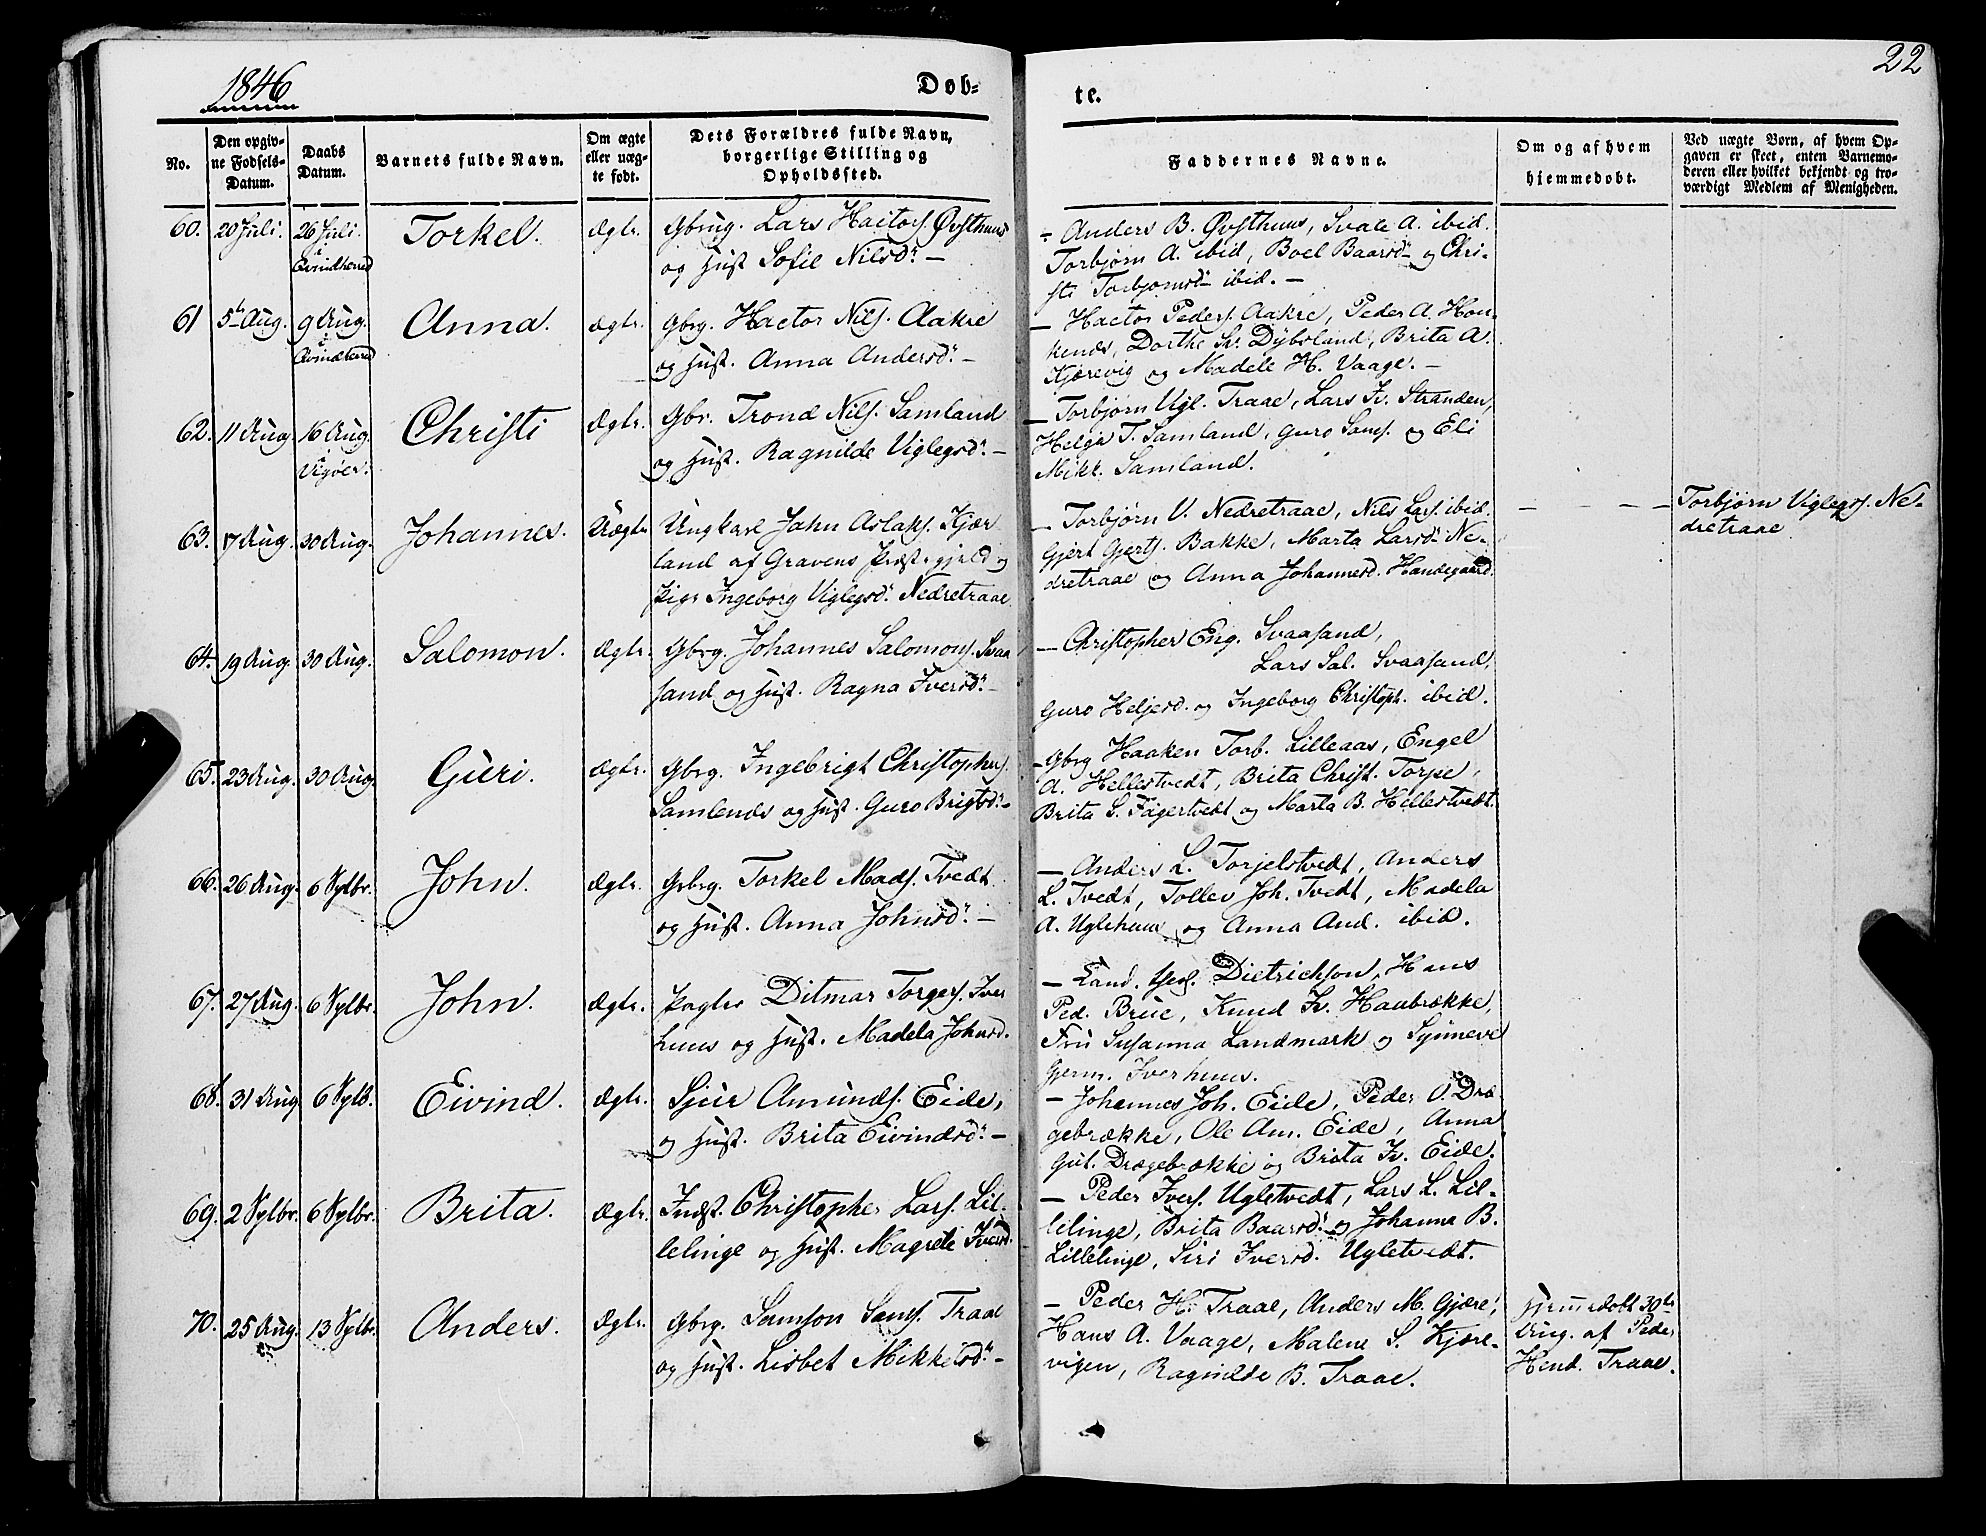 1846
Døb-
te.
22
No.
Den opgiv-
ne Fødsels-
Datum.
Daabs
Datum.
Barnets fulde Navn.
Om ægte
eller uæg-
te født.
Dets Forældres fulde Navn,
borgerlige Stilling og
Opholdssted.
Faddernes Navne.
Om og af hvem
hjemmedøbt.
Ved uægte Børn, af hvem Op-
gaven er skeet, enten Barnemo-
deren eller hvilket bekjendt og tro-
værdigt Medlem af Menigheden.
60. 20 Juli. 26 Juli. Torkel. Ægte. Gbrug. Lars Hactors. Øvsthuus
og Hust. Sofie Nilsd. –
– Anders B. Øvsthuus, Svale A. ibid.
Torbjørn A. ibid, Boel Baarsd. og Chri-
sti Torbjørnsd. ibid. –
61 5te Aug. 9 Aug. Anna. Ægte. Gbrg. Hactor Nils. Aakre
og Hust. Anna Andersd. –
– Hactor Peders. Aakre, Peder A. Hon-
kends, Dorthe Sv. Dybsland, Brita A.
Kjærevig og Madele H. Vaage. –
62. 11 Aug 16 Aug. Christi Ægte. Gbr. Trond Nils. Samland
Vigøer.
og Hust. Ragnilde Viglegsd. –
– Torbjørn Vigl. Traae, Lars Iv. Stranden,
Helge T. Samland, Guro Sams. og Eli
Mikk. Samland.
63. 17 Aug. 30 Aug. Johannes. Uægte Ungkarl John Aslaks. Kjær
land af Gravens Præstegjeld og
Pige Ingeborg Viglegsd. Nedretraae
– Torbjørn V. Nedretraae, Nils Lars. ibid.
Gjert Gjerts. Bakke, Marta Larsd. Ne-
dretraae og Anna Johannesd. Handegaard.
Torbjørn Viglegs. Ne-
dretraae
64. 19 Aug. 30 Aug. Salomon. Ægte. Gbrg. Johannes Salomons. Svaa
sand og Hust. Ragna Iversd. –
– Christopher Eng. Svaasand,
Lars Sal. Svaasand,
Guro Heljesd. og Ingeborg Christoph. ibid.
65. 23 Aug. 30 Aug. Guri. Ægte. Gbrg. Ingebrigt Christophs.
Samlends og Hust. Guro Brigtsd. –
– Gbrg Haaken Torb. Lilleaas, Engel
A. Hellestvedt, Brita Christ. Torpe,
Brita S. Fagertvedt og Marta B. Hellestvedt.
66. 26 Aug. 6 Sptbr. John. Ægte. Gbrg. Torkel Mads. Tvedt
og Hust. Anna Johnsd. –
– Anders L. Torjelstvedt, Anders
L. Tvedt, Tollev Joh. Tvedt, Madela
A. Uglehuus og Anna And. ibid.
67. 27 Aug. 6 Sptbr. John. Ægte. Pagter Ditmar Torgers. Iver
huus og Hust. Madela Johnsd.
– Dietrichson, Hans
Ped. Brue, Knud Iv. Haabrække,
Fru Susanna Landmark og Synneve
Gjerm. Iverhuus.
68. 31 Aug 6 Sptb. Eivind. Ægte. Sjur Amunds. Eide,
og Hust. Brita Eivindsd. –
– Johannes Joh. Eide, Peder O. Dræ
gebrække, Ole Am. Eide, Anna
Gul. Drægebrække og Brita Iv. Eide.
69. 2 Sptbr. 6 Sptbr. Brita. Ægte. Indst. Christopher Lars. Lil-
lelinge og Hust. Magrete Iversd.
– Peder Ivers. Ugletvedt, Lars L. Lil-
lelinge, Brita Baarsd. og Johanna B.
Lillelinge, Siri Iversd. Ugletvedt.
70. 25 Aug. 13 Sptbr. Anders. Ægte. Gbrg. Samson Sams. Traae
og Hust. Lisbet Mikkelsd. –
– Peder H. Traae, Anders M. Gjære,
Hans A. Vaage, Malene S. Kjære-
vigen, Ragnilde B. Traae.
Hjemmedøbt 30te
Aug. af Peder
Hend. Traae.